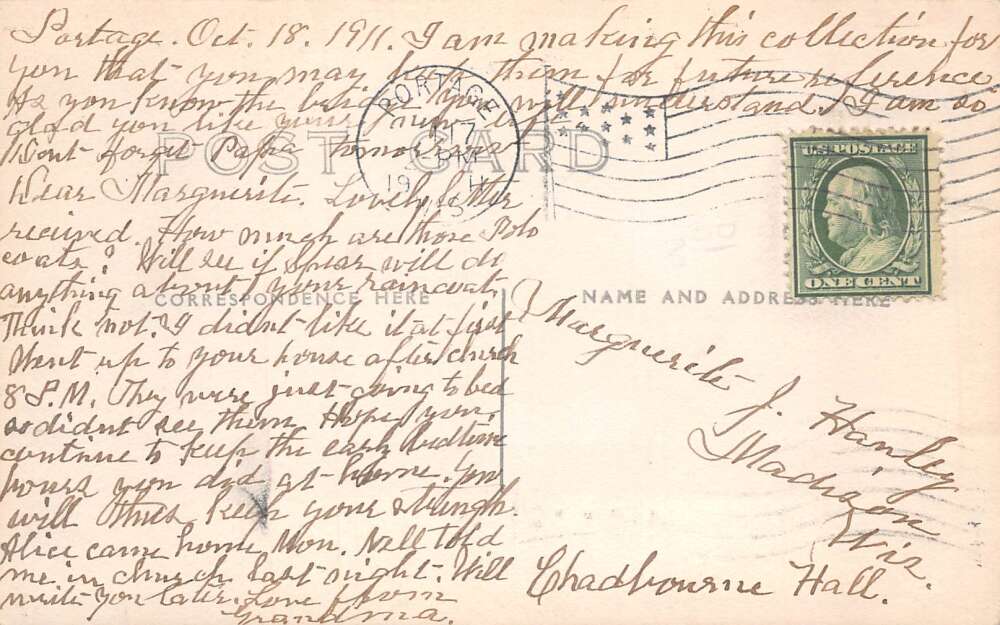 Portage. Oct. 18. 1911. I am making this collection for
you that you may keep them for future reference
As you know the bridge you will understand. I am so
glad you like your new
Dont forget Papa tomorrow
POST CARD
PORTAGE
17
PM
1911
WIS
U.S. POSTAGE
ONE CENT
Dear Marguerite. Lovely letter
recieved. How much are those Polo
coats? Will see if Spear will do
anything about your raincoat.
CORRESPONDENCE HERE
NAME AND ADDRESS HERE
Think not. I didnt like it at first
Went up to your house after church
8 P.M. They were just going to bed
so didnt see them. Hope you
continue to keep the early bedtime
hours you did at home. You
will thus keep your strength.
Alice came home Mon. Nell told
me in church last night. Will
write you later. Love from
Grandma.
Marguerite J. Hanley
Madison
Wis.
Chadbourne Hall.